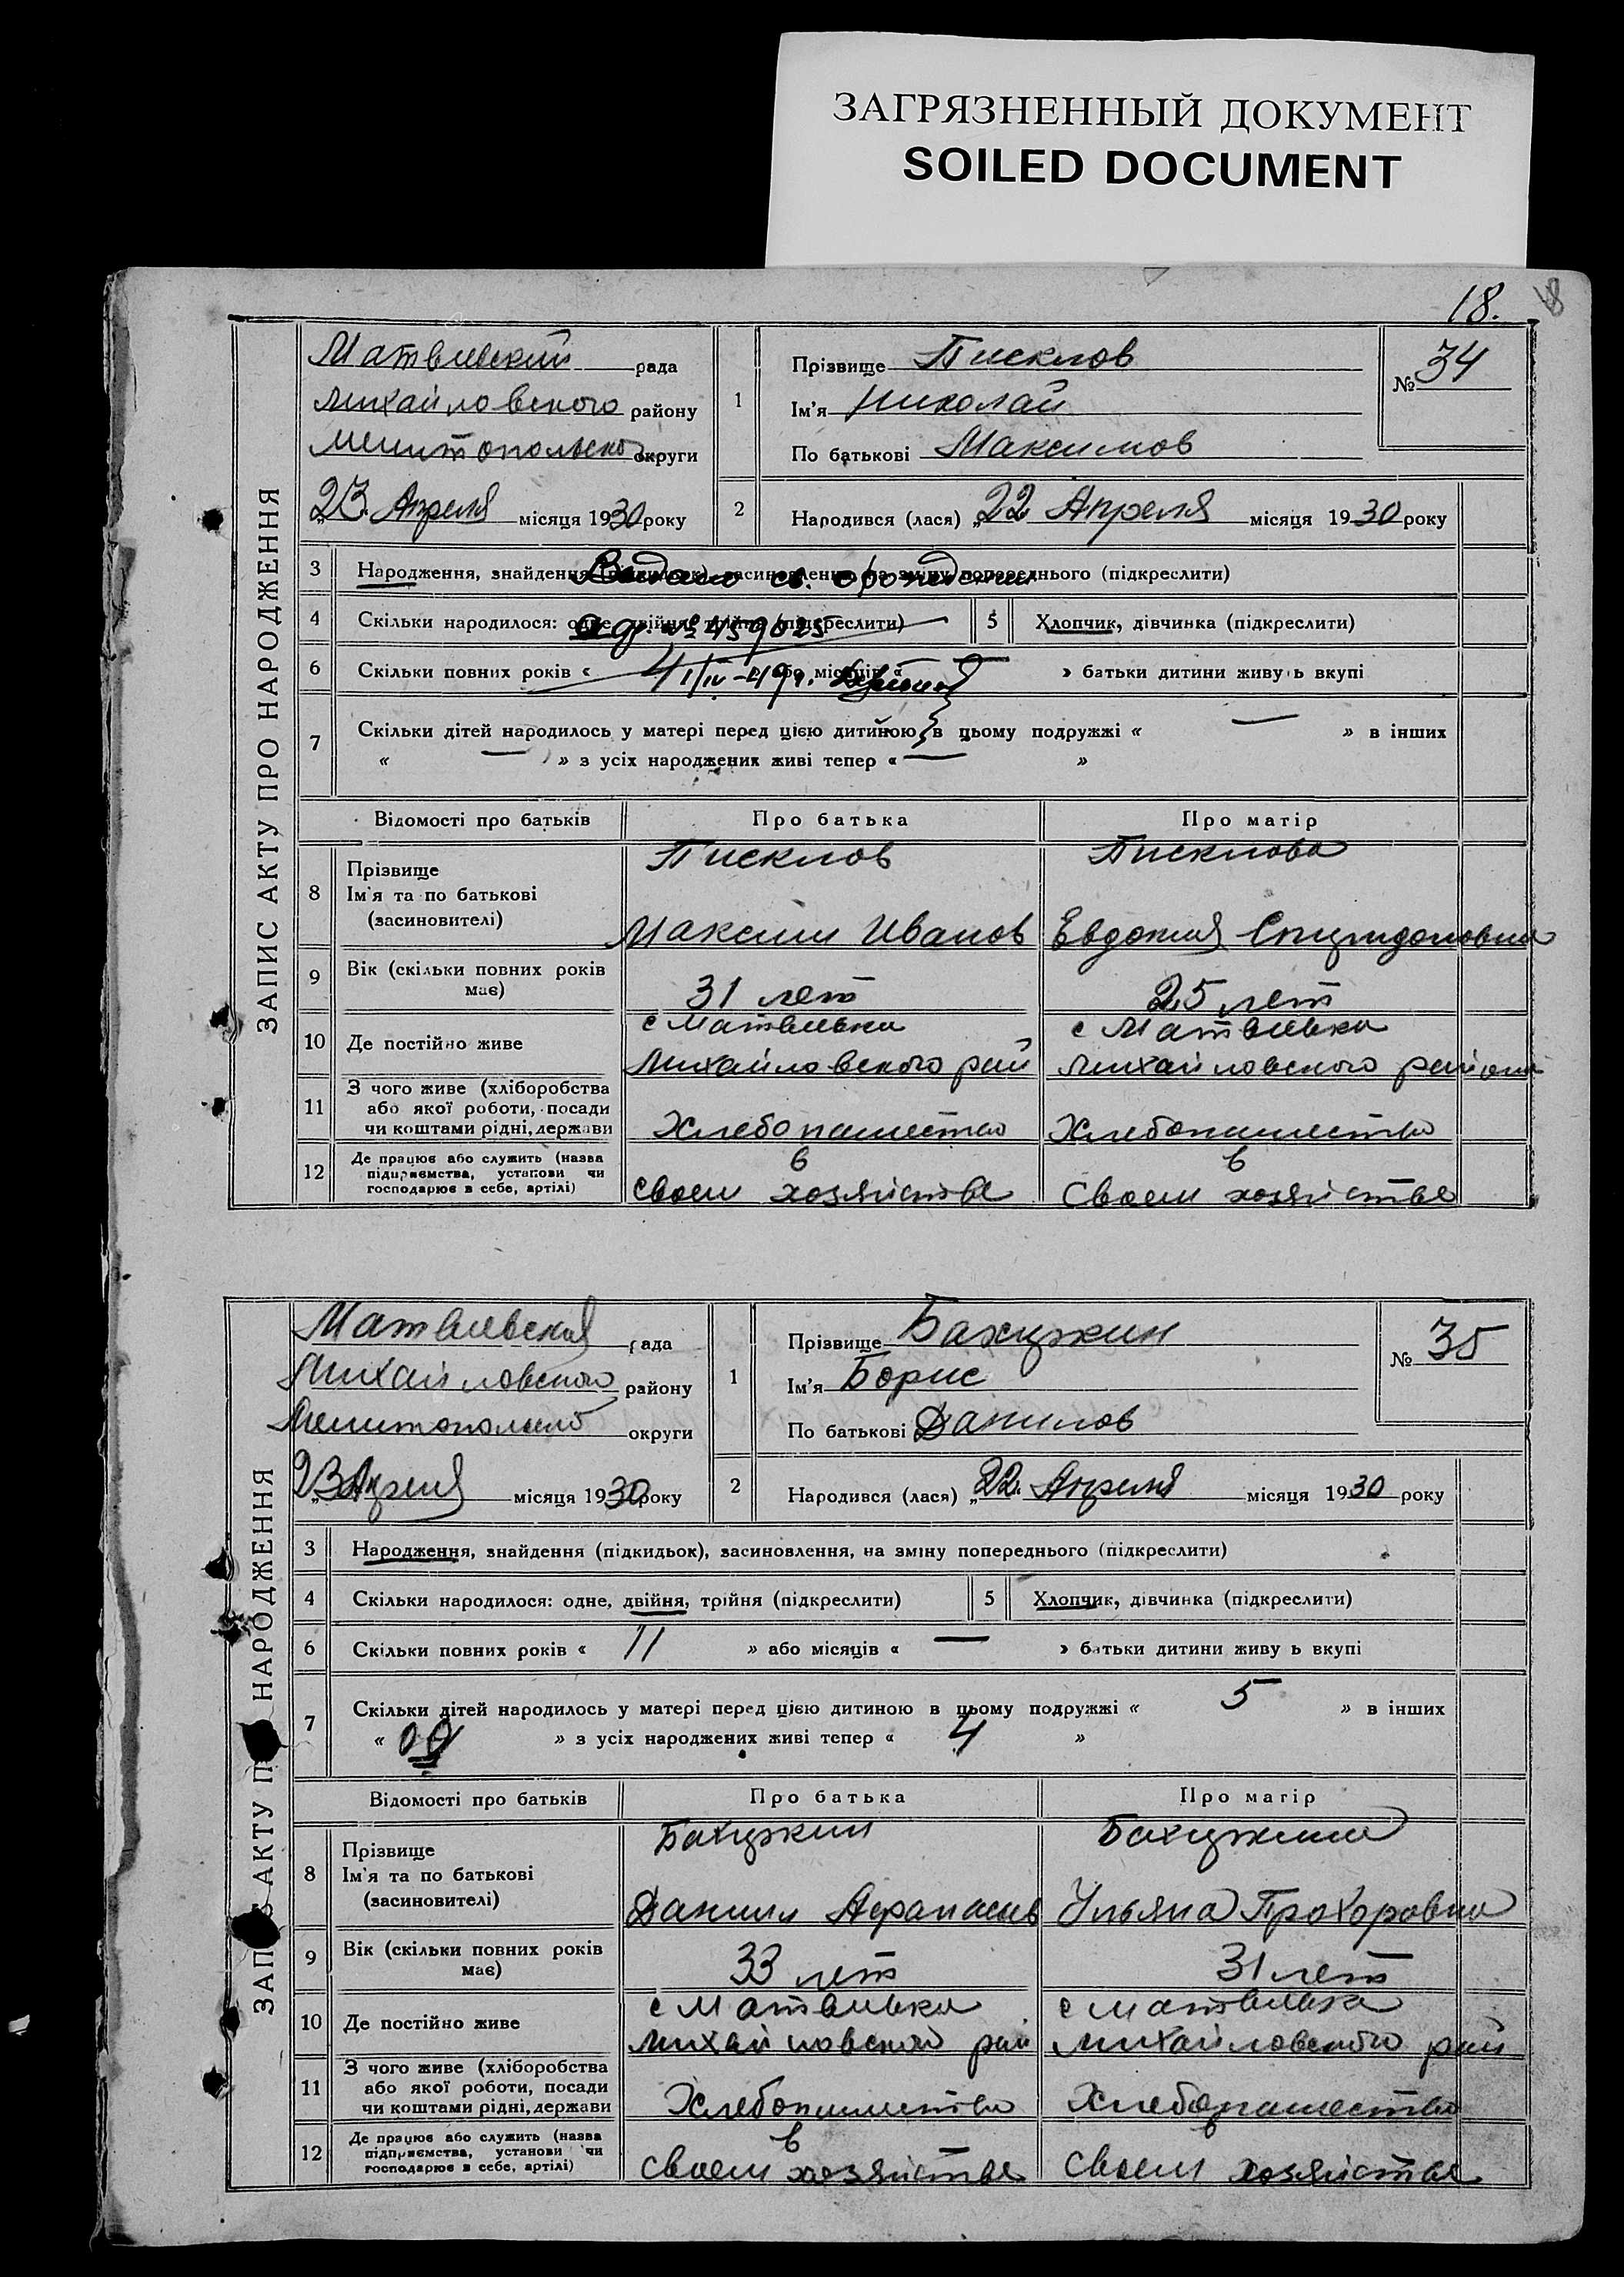 ЗАГРЯЗНЕННЫЙ ДОКУМЕНТ
SOILED DOCUMENT
18. 18
ЗАПИС АКТУ ПРО НАРОДЖЕННЯ
Матвиевский рада
Михайловского району
округи
23 Апреля місяця 1930 року
1
Прізвище Писклов
Ім'я Николай
По батькові Максимов
№ 34
2
Народився (лася) „22 Апреля місяця 1930 року
3 Народження, знайдення (підкидьок), засиновлення, на зміну попереднього (підкреслити)
4 Скільки народилося: одне, двійня, трійня (підкреслити) 5 Хлопчик, дівчинка (підкреслити)
6 Скільки повних років « » або місяців « — » батьки дитини живу ь вкупі
7 Скільки дітей народилось у матері перед цією дитиною в цьому подружжі « — » в інших
« — » з усіх народжених живі тепер « — »
Відомості про батьків Про батька Про матір
8 Прізвище
Ім'я та по батькові
(засиновителі)
Писклов
Максим Иванов
Писклова
Евдокия Спиридоновна
9 Вік (скільки повних років має)
31 лет
25 лет
10 Де постійно живе
с Матвиевка
Михайловского рай
с Матвиевка
Михайловского района
11 З чого живе (хліборобства
або якої роботи, посади
чи коштами рідні, держави
Хлебопашество
Хлебопашество
12 Де працює або служить (назва
підприємства, установи чи
господарює в себе, артілі)
в
своем хозяйстве
в
своем хозяйстве
ЗАПИС АКТУ ПРО НАРОДЖЕННЯ
Матвиевская рада
Михайловского району
округи
23 Апреля місяця 1930 року
1
Прізвище Бахужкин
Ім'я Борис
По батькові Данилов
№ 35
2
Народився (лася) „22. Апреля місяця 1930 року
3 Народження, знайдення (підкидьок), засиновлення, на зміну попереднього (підкреслити)
4 Скільки народилося: одне, двійня, трійня (підкреслити) 5 Хлопчик, дівчинка (підкреслити)
6 Скільки повних років « 11 » або місяців « — » батьки дитини живу ь вкупі
7 Скільки дітей народилось у матері перед цією дитиною в цьому подружжі « 5 » в інших
« » з усіх народжених живі тепер « 4 »
Відомості про батьків Про батька Про матір
8 Прізвище
Ім'я та по батькові
(засиновителі)
Бахужкин
Данил Афанасьев
Бахужкина
Ульяна Прохоровна
9 Вік (скільки повних років має)
33 лет
31 лет
10 Де постійно живе
с Матвиевка
Михайловской рай
с Матвиевка
Михайловского рай
11 З чого живе (хліборобства
або якої роботи, посади
чи коштами рідні, держави
Хлебопашество
Хлебопашество
12 Де працює або служить (назва
підприємства, установи чи
господарює в себе, артілі)
в
своем хозяйстве
в
своем хозяйстве